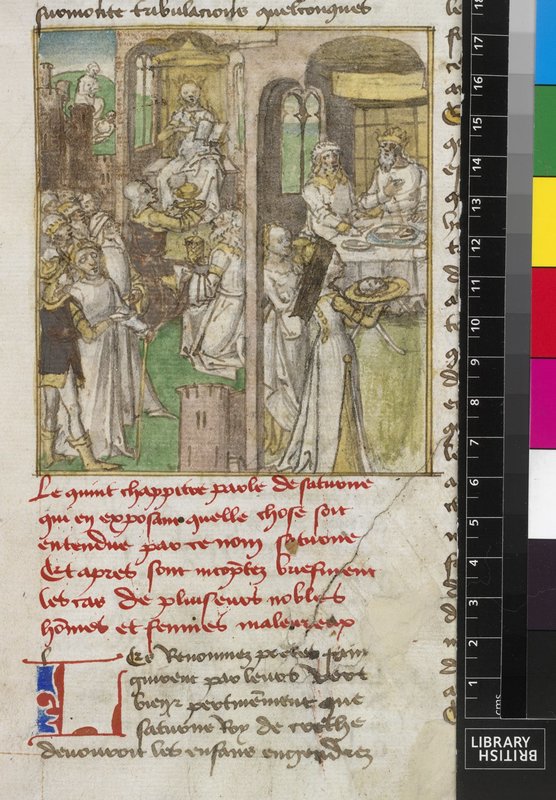 surmonte tribulacions quelconques
Le quint chappitre parle de saturne
qui en exposant quelle chose soit
entendue par ce nom saturne
Et apres sont nomptez briefment
les cas de pluiseurs nobles
hommes et femmes maleureux
Les Renommez poetes fain
gnirent par leurs
bien pertinemment que
saturne Roy de crethe
devouroit les enfans engendrez
18
17
16
15
14
13
12
11
10
9
8
7
6
5
4
3
2
1
cms
BRITISH
LIBRARY